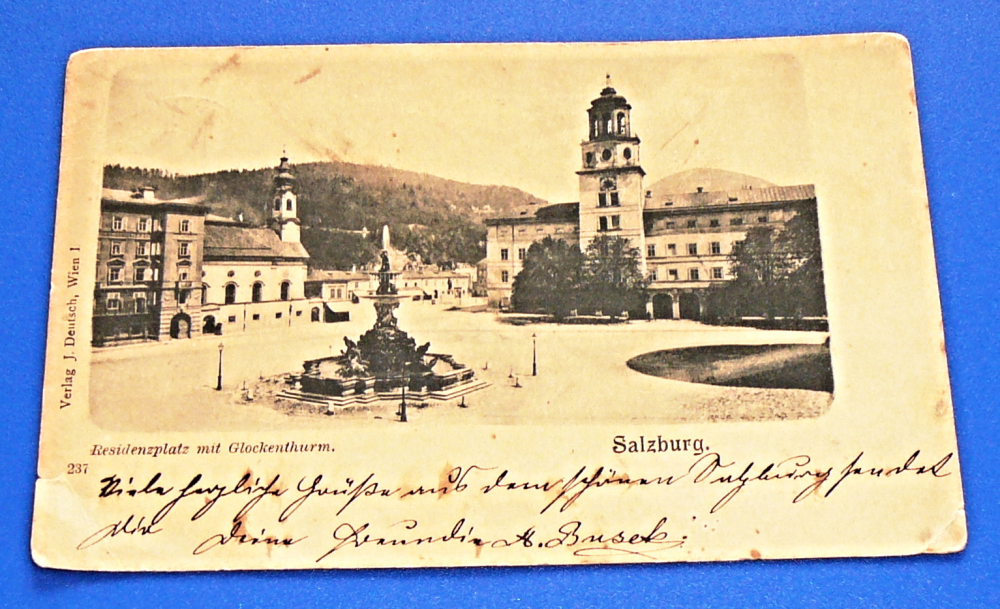 Verlag J. Deutsch, Wien I
Residenzplatz mit Glockenthurm.
Salzburg.
237
Viele herzliche Grüße aus dem schönen Salzburg sendet
Dir Deine Freundin A. Busek.